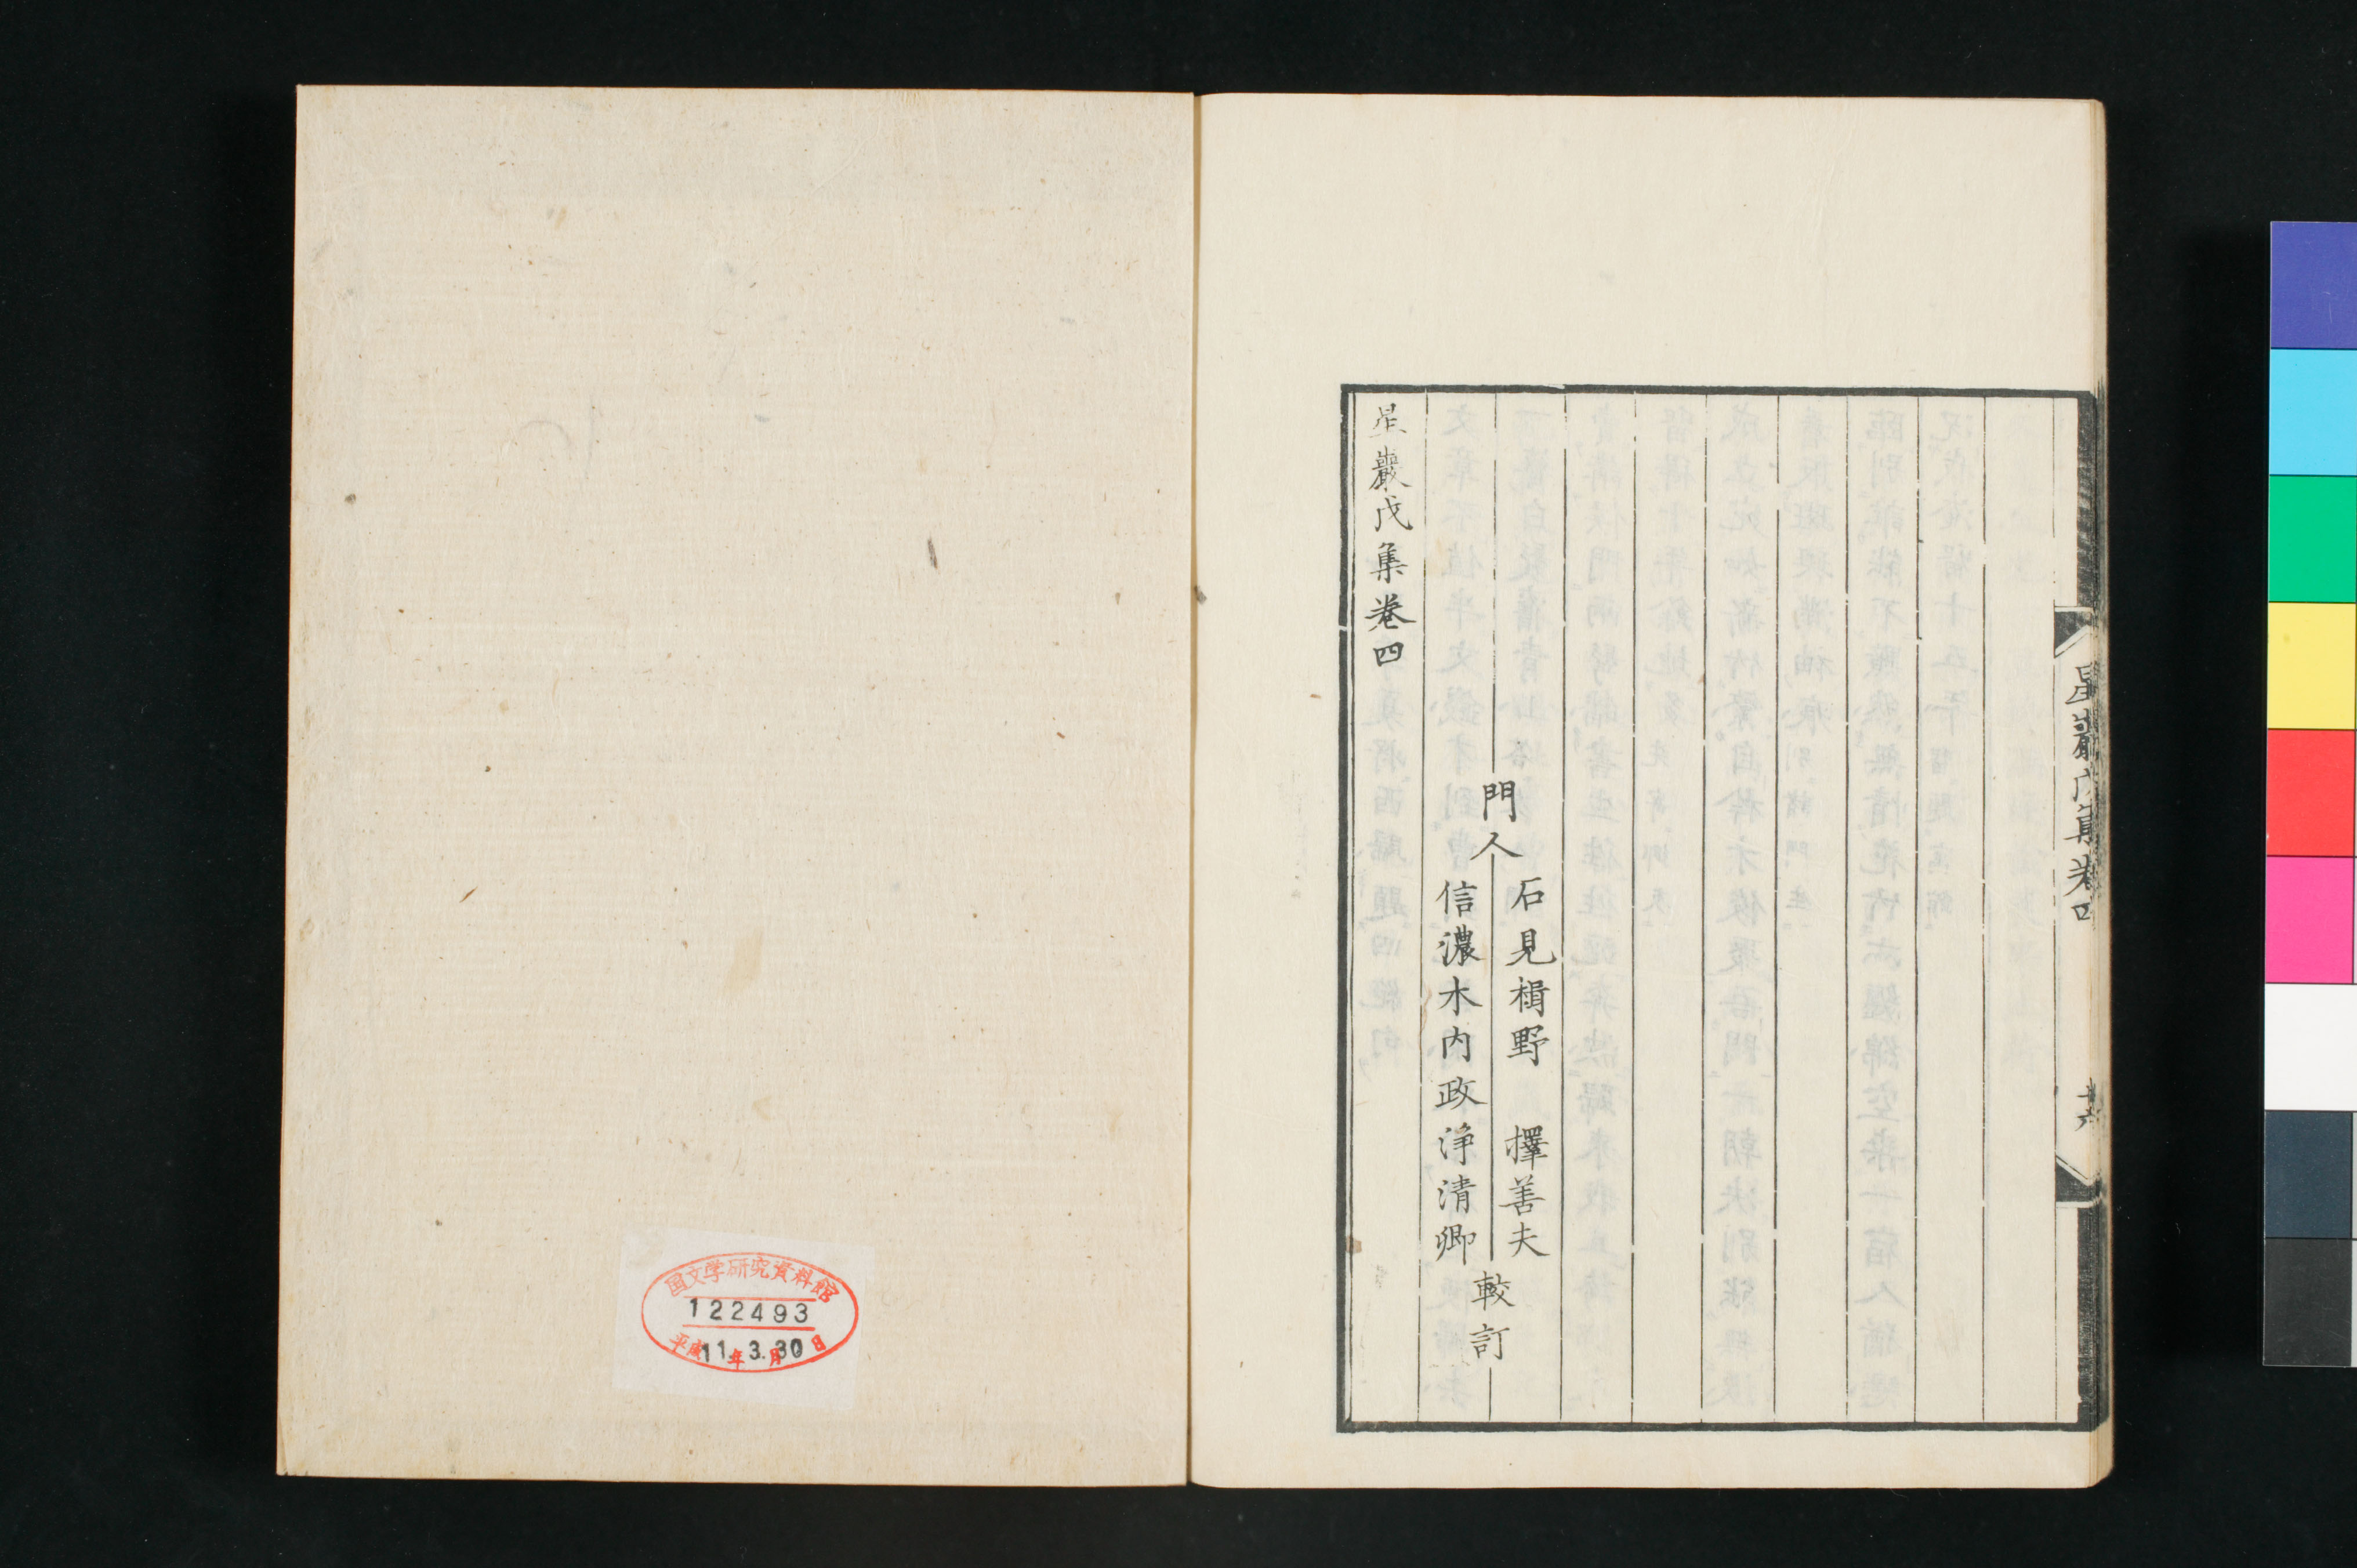 星巖戊集卷四
十六
門人
石見楫野 擇善夫
信濃木内政淨清卿
較訂
星巖戊集卷四
国文学研究資料館
122493
平成11年3月30日